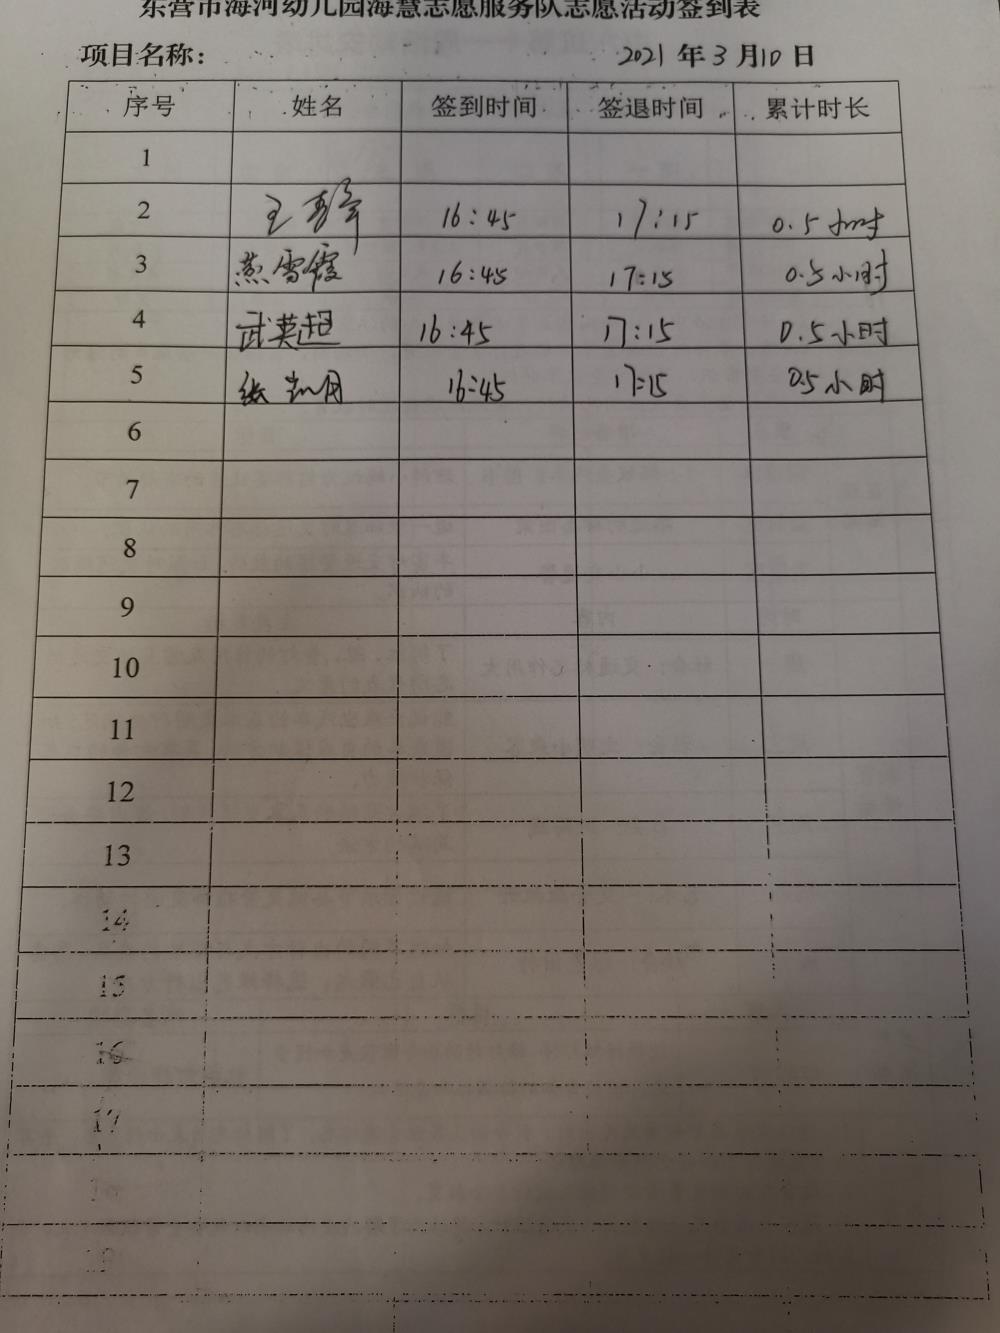 东营市海河幼儿园海慧志愿服务队志愿活动签到表
项目名称： 2021 年 3 月 10 日
序号 姓名 签到时间 签退时间 累计时长
1
2 王 16:45 17:15 0.5小时
3 燕雪霞 16:45 17:15 0.5小时
4 武英超 16:45 17:15 0.5小时
5 张 月 16:45 17:15 0.5小时
6
7
8
9
10
11
12
13
14
15
16
17
19